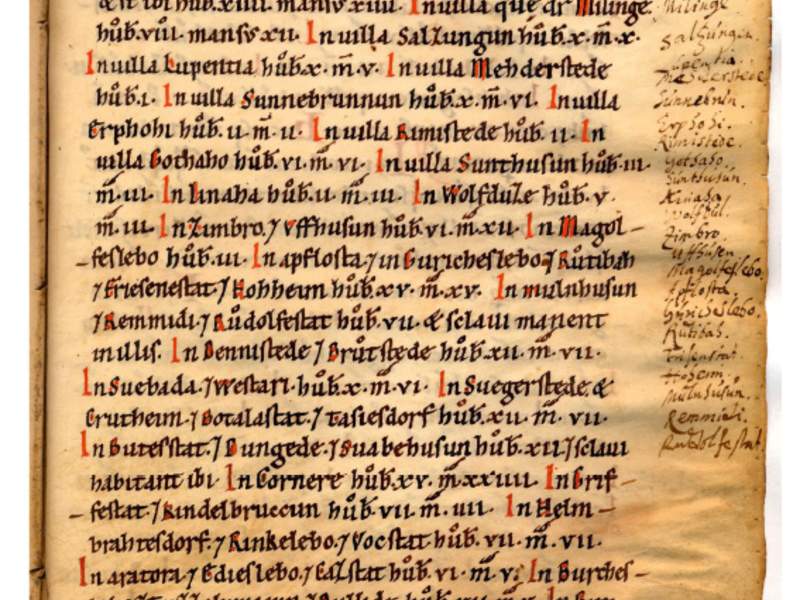 & st ibi hub.xiiii. mansus xiiii. In uilla que dr Milinge.
hůb.viii. mansvs xii. In uilla Salzungun hůb.x.m̄.x.
In uilla Lupentia hůb.x.m̄.v. In uilla Mehderstede
hůb.i. In uilla Sunnebrunnun hůb.x.m̄.vi. In uilla
Erphohi hůb.ii.m̄.ii. In uilla Rimistede hůb.ii. In
uilla Gothaho hůb.vi.m̄.vi. In uilla Sunthusun hůb.iii.
m̄.iii. In Linaha hůb.ii.m̄.iii. In Wolfduze hůb.v.
m̄.iii. In Zimbro.⁊ Vffhusun hůb.vi.m̄.xii. In Magol-
feslebo hůb.iii. In apflosta.⁊ in Guricheslebo.⁊ Růtibah
⁊ Friesenestat.⁊ Hohheim hůb.xv.m̄.xv. In mulnhusun
⁊ Remmidi.⁊ Růdolfestat hůb.vii. & sclaui manent
in illis. In Dennistede ⁊ Brůtstede hůb.xii.m̄.vii.
In Suebada.⁊ Westari.hůb.x.m̄.vi. In Suegerstede.&
Grutheim.⁊ Botalastat.⁊ Tasiesdorf hůb.xii.m̄.vii.
In Butesstat.⁊ Dungede.⁊ Suabehusun hůb.xii.⁊ sclaui
habitant ibi. In Cornere hůb.xv.m̄.xxiiii. In Grif-
festat.⁊ Kindelbruccun hůb.vii.m̄.uii. In Helm-
brahtesdorf.⁊ Rinkelebo.⁊ Vocstat hůb.vii.m̄.vii.
In aratora.⁊ Edieslebo.⁊ Ealstat hůb.vi.m̄.v. In Burches-
Milinge
Salzungen.
Sunnebrun.
Erphohi.
Rimistede.
Gothaho.
Sunthusun.
Linaha.
Wolfdul.
Zimbro.
Uffhusen.
Magolfeslebo.
Apflosta.
Guricheslebo.
Rutibah.
Hoheim.
Mulnhusun.
Remmidi.
Rudolfestat.